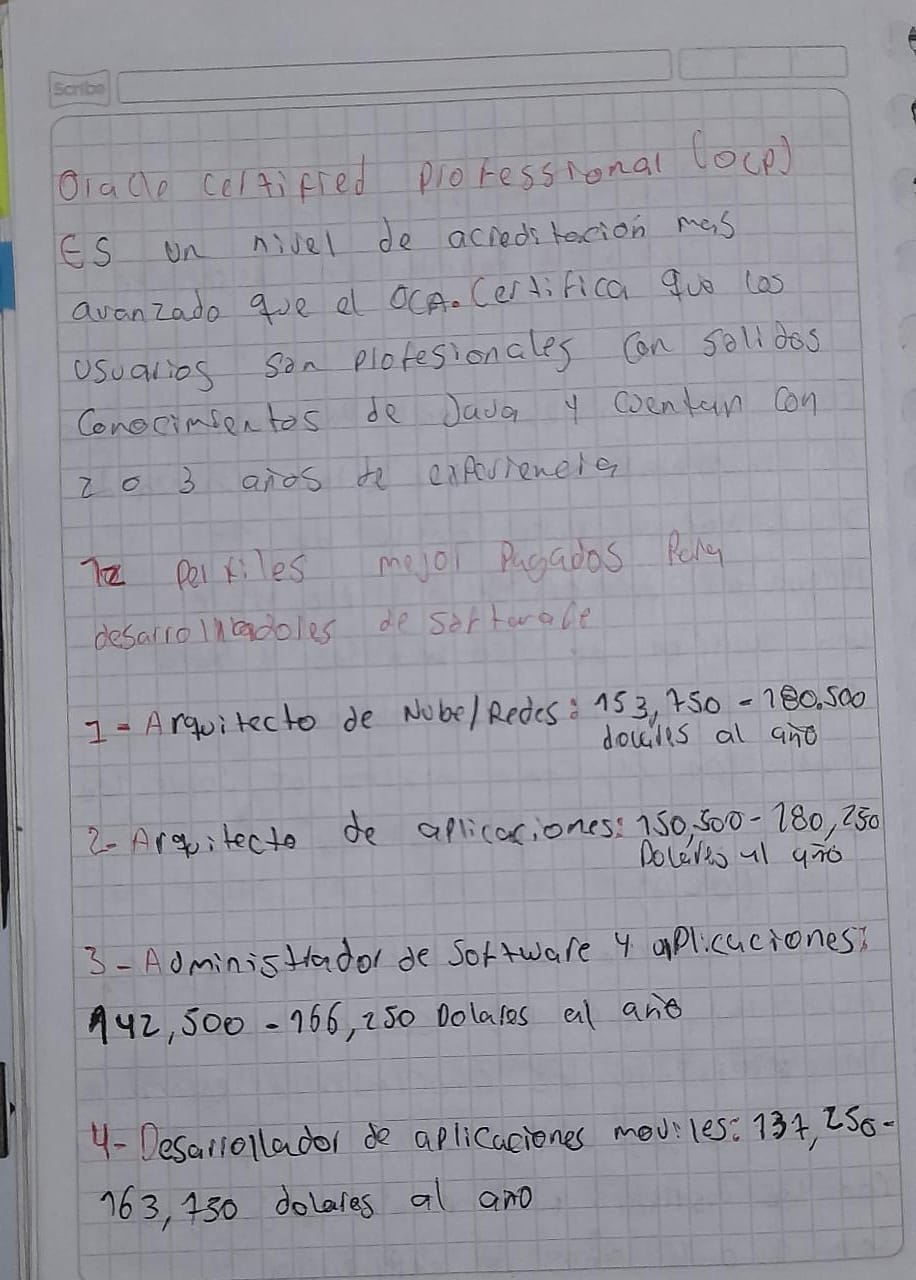 Scribe
Oracle certified professional (OCP)
ES un nivel de acreditacion mas
avanzado que el OCA. Certifica que los
usuarios son profesionales con solidos
Conocimientos de Java y cuentan con
2 o 3 años de experiencia
12 perfiles mejor Pagados Para
desarrolladores de software
1- Arquitecto de Nube/Redes: 153,750 - 180,500
dolares al año
2- Arquitecto de aplicaciones: 150,500 - 180,250
Dolares al año
3- Administrador de software y aplicaciones:
142,500 - 166,250 Dolares al año
4- Desarrollador de aplicaciones moviles: 137,250-
163,750 dolares al año